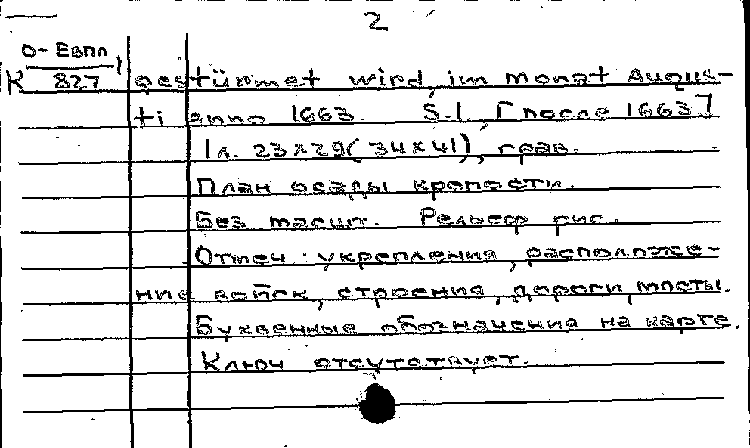 2
О-Евпл
К 827
gestürmet wird, im monat Augus-
ti anno 1663. S.l., [после 1663]
1 л. 23х29(34х41), грав.
План осады крепости.
Без масшт. Рельеф рис.
Отмеч.: укрепления, расположе-
ние войск, строения, дороги, мосты.
Буквенные обозначения на карте.
Ключ отсутствует.